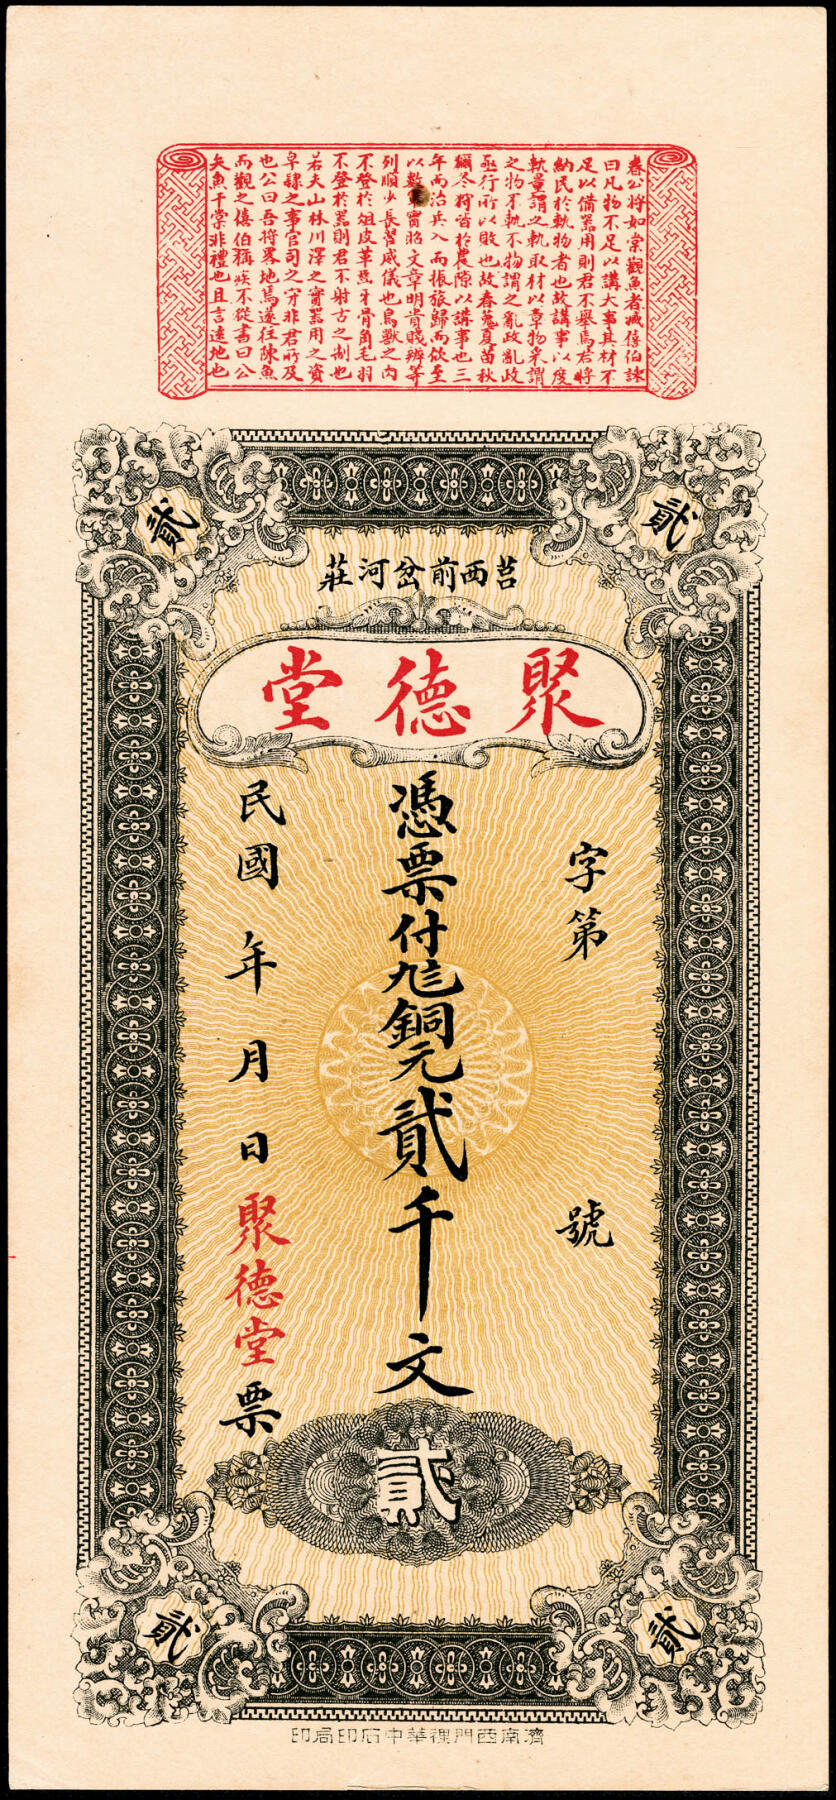 春公將如棠觀魚者臧僖伯諫
曰凡物不足以講大事其材不
足以備器用則君不舉焉君將
納民於軌物者也故講事以度
軌量謂之軌取材以章物采謂
之物不軌不物謂之亂政亂政
亟行所以敗也故春蒐夏苗秋
獮冬狩皆於農隙以講事也三
年而治兵入而振旅歸而飲至
以數軍實昭文章明貴賤辨等
列順少長習威儀也鳥獸之肉
不登於俎皮革齒牙骨角毛羽
不登於器則君不射古之制也
若夫山林川澤之實器用之資
皁隸之事官司之守非君所及
也公曰吾將畧地焉遂往陳魚
而觀之僖伯稱疾不從書曰公
矢魚于棠非禮也且言遠地也
貳
貳
莒西前岔河莊
聚德堂
字第 號
憑票付銅元貳千文
民國 年 月 日 聚德堂票
貳
貳
貳
濟南西門裡華中石印局印